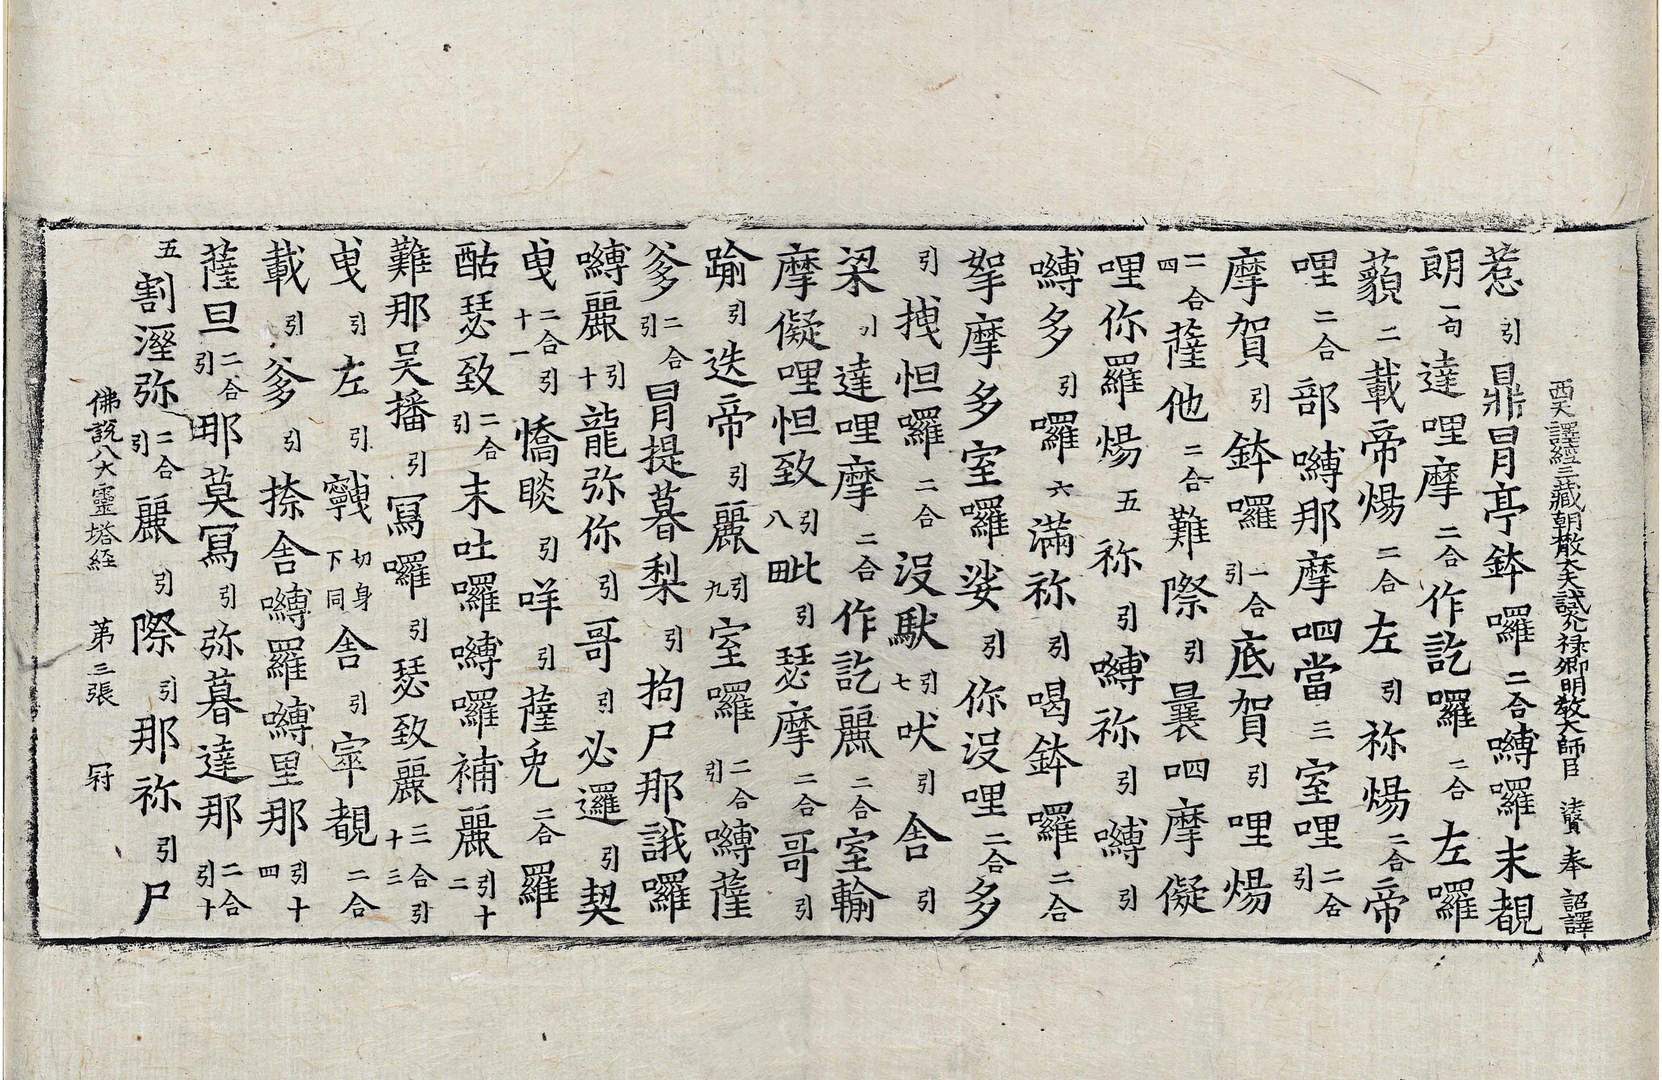 西天譯經三藏朝散大夫試光祿卿明教大師臣 法賢 奉 詔譯
惹引鼎冐亭鉢囉二合嚩囉末覩
朗一句達哩摩二合作訖囉二合左囉
藐二載帝煬二合左引祢煬二合帝
哩二合部嚩那摩呬當三室哩二合引
摩賀引鉢囉二合引底賀引哩煬
二合四薩他二合難際引曩呬摩儗
哩你羅煬五祢引嚩祢引嚩引
嚩多引囉六滿祢引喝鉢囉二合
拏摩多室囉娑引你沒哩二合多
引拽怛囉二合沒馱引七吠引舍引
梁引達哩摩二合作訖麗二合室輸
摩儗哩怛致引八毗引瑟摩二合哥引
踰引迭帝引麗引九室囉二合引嚩薩
爹二合引冐提暮梨引拘尸那誐囉
嚩麗引十龍弥你引哥引必邏引契
曳二合引十一憍睒引咩引薩兎二合羅
酤瑟致二合引末吐囉嚩囉補麗引十二
難那吴播引冩囉引瑟致麗三合引十三
曳引左引戰切身下同舍引宰覩二合
載引爹引捺舍嚩羅嚩里那引十四
薩旦二合引那莫冩引弥暮達那二合引十
五割溼弥二合引麗引際引那祢引尸
佛說八大靈塔經 第三張 冠